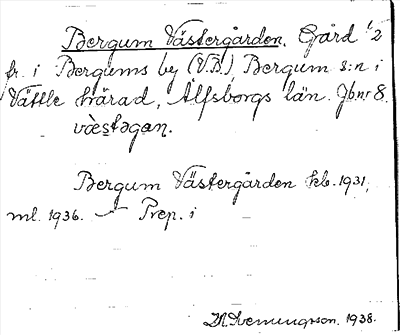 Bergum Västergården. Gård 1/2
fr. i Bergums by (V.B.), Bergum s:n i
Vättle härad, Älfsborgs län. Jbnr 8.
væstəgan.
Bergum Västergården kb. 1931,
ml. 1936. — Prep. i
1938.